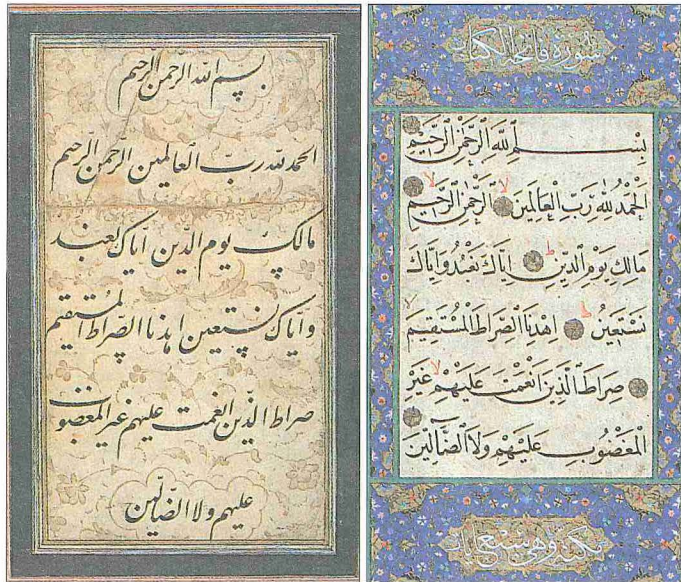 سورة فاتحة الكتاب
بِسْمِ اللَّهِ الرَّحْمٰنِ الرَّحِيمِ
اَلْحَمْدُ لِلَّهِ رَبِّ الْعَالَمِينَ الرَّحْمٰنِ الرَّحِيمِ
مَالِكِ يَوْمِ الدِّينِ اِيَّاكَ نَعْبُدُ وَاِيَّاكَ
نَسْتَعِينُ اِهْدِنَا الصِّرَاطَ الْمُسْتَقِيمَ
صِرَاطَ الَّذِينَ اَنْعَمْتَ عَلَيْهِمْ غَيْرِ
الْمَغْضُوبِ عَلَيْهِمْ وَلَا الضَّالِّينَ
مكية وهي سبع ايات
بسم الله الرّحمن الرّحيم
الحمد لله ربّ العالمين الرّحمن الرّحيم
مالك يوم الدّين ايّاك نعبد
وايّاك نستعين اهدنا الصّراط المُستقيم
صراط الّذين انعمت عليهم غير المغضوب
عليهم ولا الضّالّين